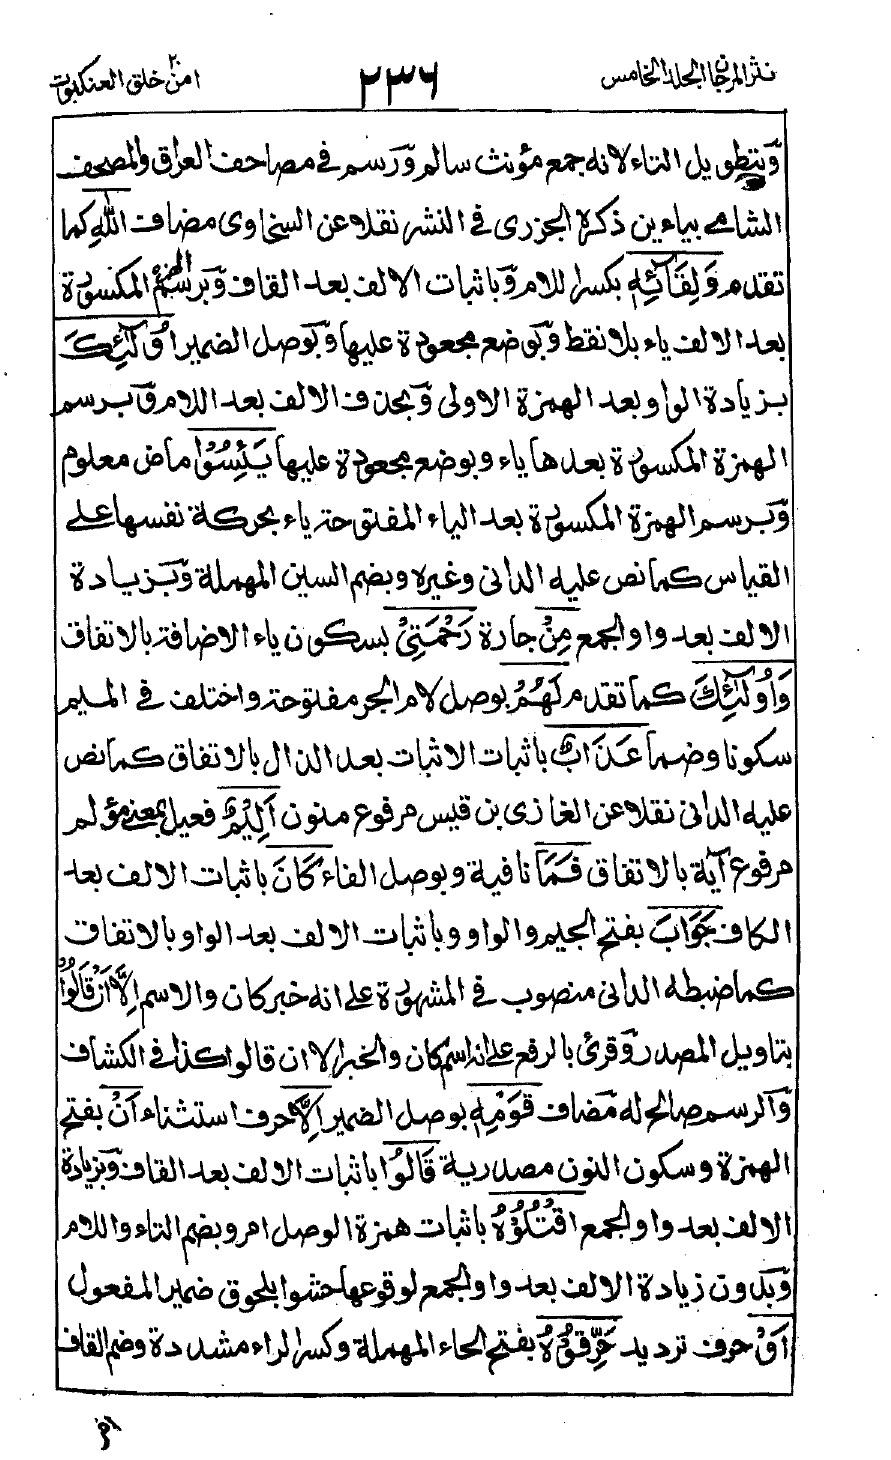 نثر المرجان المجلد الخامس
٢٣٦
امن خلق ٢٠ العنكبوت
وبتطويل التاء لانه جمع مؤنث سالم ورسم في مصاحف العراق والمصحف
الشامي بياءين ذكره الجزرى في النشر نقلا عن السخاوى مضاف اللهِ كما
تقدم وَلِقَآئِهٖ بكسر اللام وباثبات الالف بعد القاف وبرسم الهمزة المكسورة
بعد الالف ياء بلا نقط وبوضع مجعودة عليها وبوصل الضمير اُولٰٓئِكَ
بزيادة الواو بعد الهمزة الاولى وبحذف الالف بعد اللام وبرسم
الهمزة المكسورة بعدها ياء وبوضع مجعودة عليها يَئِسُوْا ماض معلوم
وبرسم الهمزة المكسورة بعد الياء المفتوحة ياء بحركة نفسها على
القياس كما نص عليه الدانى وغيره وبضم السين المهملة وبزيادة
الالف بعد واو الجمع مِنْ جارة رَحْمَتِىْ بسكون ياء الاضافة بالاتفاق
وَاُولٰٓئِكَ كما تقدم لَهُمْ بوصل لام الجر مفتوحة واختلف في الميم
سكونا وضما عَذَابٌ باثبات الاثبات بعد الذال بالاتفاق كما نص
عليه الدانى نقلا عن الغازى بن قيس مرفوع منون اَلِيْمٌ فعيل بمعنى مؤلم
مرفوع آية بالاتفاق فَمَا نافية وبوصل الفاء كَانَ باثبات الالف بعد
الكاف جَوَابَ بفتح الجيم والواو وباثبات الالف بعد الواو بالاتفاق
كما ضبطه الدانى منصوب في المشهورة على انه خبر كان والاسم اِلَّا اَنْ قَالُوْا
بتاويل المصدر وقرئ بالرفع على انه اسم كان والخبر الا ان قالوا كذا في الكشاف
والرسم صالح له مضاف قَوْمِهٖ بوصل الضمير اِلَّا حرف استثناء اَنْ بفتح
الهمزة وسكون النون مصدرية قَالُوا باثبات الالف بعد القاف وبزيادة
الالف بعد واو الجمع اقْتُلُوْهُ باثبات همزة الوصل امر وبضم التاء واللام
وبدون زيادة الالف بعد واو الجمع لوقوعها حشوا بلحوق ضمير المفعول
اَوْ حرف ترديد حَرِّقُوْهُ بفتح الحاء المهملة وكسر الراء مشددة وضم القاف